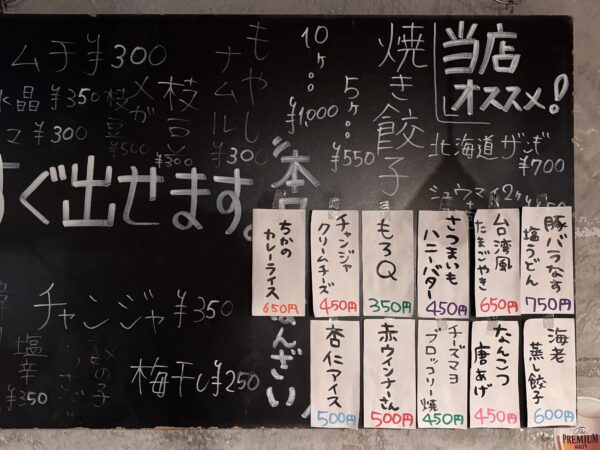 当店
オススメ!
北海道ザンギ
¥700
シュウマイ2ヶ
焼き餃子
5ヶ…¥550
10ヶ…¥1,000
もやし
ナムル
¥300
枝豆
¥300
メガ
枝豆
¥500
ムチ ¥300
水晶 ¥350
マ ¥300
すぐ出せます。
チャンジャ ¥350
梅干し ¥250
塩辛
¥350
豚バラなす
塩うどん
750円
台湾風
たまごやき
650円
さつまいも
ハニーバター
450円
もろQ
350円
チャンジャ
クリームチーズ
450円
ちかの
カレーライス
650円
海老
蒸し餃子
600円
なんこつ
唐あげ
450円
チーズマヨ
ブロッコリー焼
450円
赤ウインナーさん
500円
杏仁アイス
500円
The
PREMIUM
MALT'S